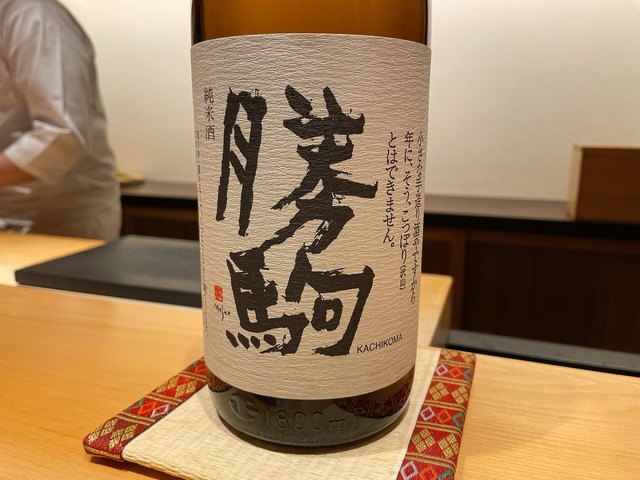 小さな手造り蔵ですから
年に、そう、こっぽり(沢山)
とはできません。
勝駒
純米酒
KACHIKOMA
1800ml